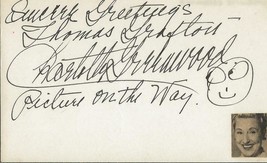 Sincere Greetings
Thomas Grafton
Charlotte Greenwood
Picture on the Way.